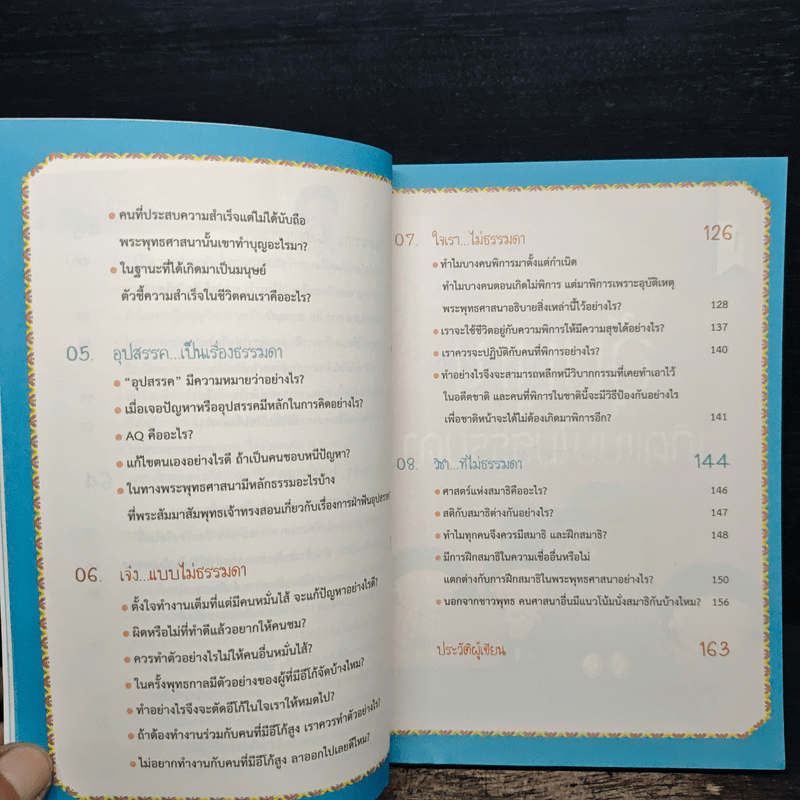 • คนที่ประสบความสำเร็จแต่ไม่ได้นับถือ
พระพุทธศาสนานั้นเขาทำบุญอะไรมา?
• ในฐานะที่ได้เกิดมาเป็นมนุษย์
ตัวชี้ความสำเร็จในชีวิตคนเราคืออะไร?
05. อุปสรรค...เป็นเรื่องธรรมดา
• “อุปสรรค” มีความหมายว่าอย่างไร?
• เมื่อเจอปัญหาหรืออุปสรรคมีหลักในการคิดอย่างไร?
• AQ คืออะไร?
• แก้ไขตนเองอย่างไรดี ถ้าเป็นคนชอบหนีปัญหา?
• ในทางพระพุทธศาสนามีหลักธรรมอะไรบ้าง
ที่พระสัมมาสัมพุทธเจ้าทรงสอนเกี่ยวกับเรื่องการฝ่าฟันอุปสรรค
06. เจ๋ง...แบบไม่ธรรมดา
• ตั้งใจทำงานเต็มที่แต่มีคนหมั่นไส้ จะแก้ปัญหาอย่างไรดี?
• ผิดหรือไม่ที่ทำดีแล้วอยากให้คนชม?
• ควรทำตัวอย่างไรไม่ให้คนอื่นหมั่นไส้?
• ในครั้งพุทธกาลมีตัวอย่างของผู้ที่มีอีโก้จัดบ้างไหม?
• ทำอย่างไรจึงจะตัดอีโก้ในใจเราให้หมดไป?
• ถ้าต้องทำงานร่วมกับคนที่มีอีโก้สูง เราควรทำตัวอย่างไร?
• ไม่อยากทำงานกับคนที่มีอีโก้สูง ลาออกไปเลยดีไหม?
07. ใจเรา...ไม่ธรรมดา 126
• ทำไมบางคนพิการมาตั้งแต่กำเนิด
ทำไมบางคนตอนเกิดไม่พิการ แต่มาพิการเพราะอุบัติเหตุ
พระพุทธศาสนาอธิบายสิ่งเหล่านี้ไว้อย่างไร? 128
• เราจะใช้ชีวิตอยู่กับความพิการให้มีความสุขได้อย่างไร? 137
• เราควรจะปฏิบัติกับคนที่พิการอย่างไร? 140
• ทำอย่างไรจึงจะสามารถหลีกหนีวิบากกรรมที่เคยทำเอาไว้
ในอดีตชาติ และคนที่พิการในชาตินี้จะมีวิธีป้องกันอย่างไร
เพื่อชาติหน้าจะได้ไม่ต้องเกิดมาพิการอีก? 141
08. วิชา...ที่ไม่ธรรมดา 144
• ศาสตร์แห่งสมาธิคืออะไร? 146
• สติกับสมาธิต่างกันอย่างไร? 147
• ทำไมทุกคนจึงควรมีสมาธิ และฝึกสมาธิ? 148
• มีการฝึกสมาธิในความเชื่ออื่นหรือไม่
แตกต่างกับการฝึกสมาธิในพระพุทธศาสนาอย่างไร? 150
• นอกจากชาวพุทธ คนศาสนาอื่นมีแนวโน้มนั่งสมาธิกันบ้างไหม? 156
ประวัติผู้เขียน 163